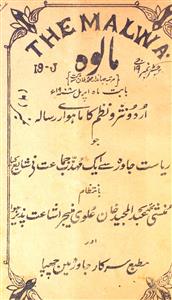 THE MALWA.
مالوہ
19-J
بابت ماہ اپریل ۱۹۰۰ء
اردو نثر و نظم کا ماہوار رسالہ
جو
ریاست جاورہ سے ایک مہذب جماعت نے شایع کیا
بانتظام
منشی محمد عبد المجید خان علوی منیجر اشاعت پذیر ہوا
اور
مطبع سرکار جاورہ میں چھپا